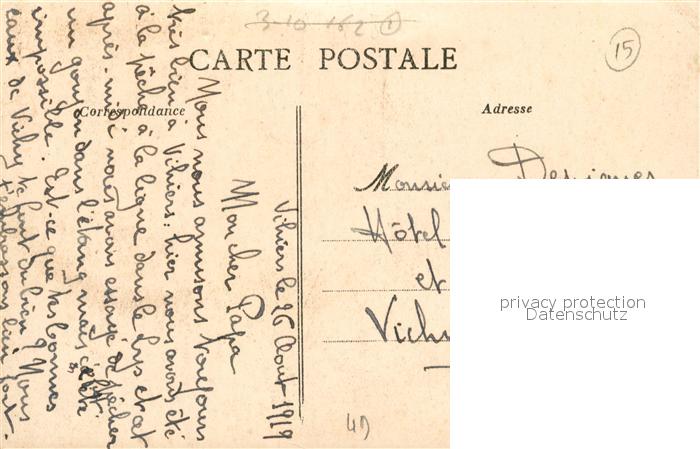 3-10 162 1
15
CARTE POSTALE
Correspondance
Adresse
Vihiers le 26 Août 1919
Mon cher Papa
Nous nous amusons toujours
très bien à Vihiers; hier nous avons été
à la pêche à la ligne dans le Lys et cet
après-midi nous avons essayé de pêcher
un goujon dans l'étang mais c'était
impossible. Est-ce que les bonnes
eaux de Vichy te font du bien? Nous
t'embrassons bien fort.
Monsie
Hôtel
et
Vichy
40
privacy protection
Datenschutz